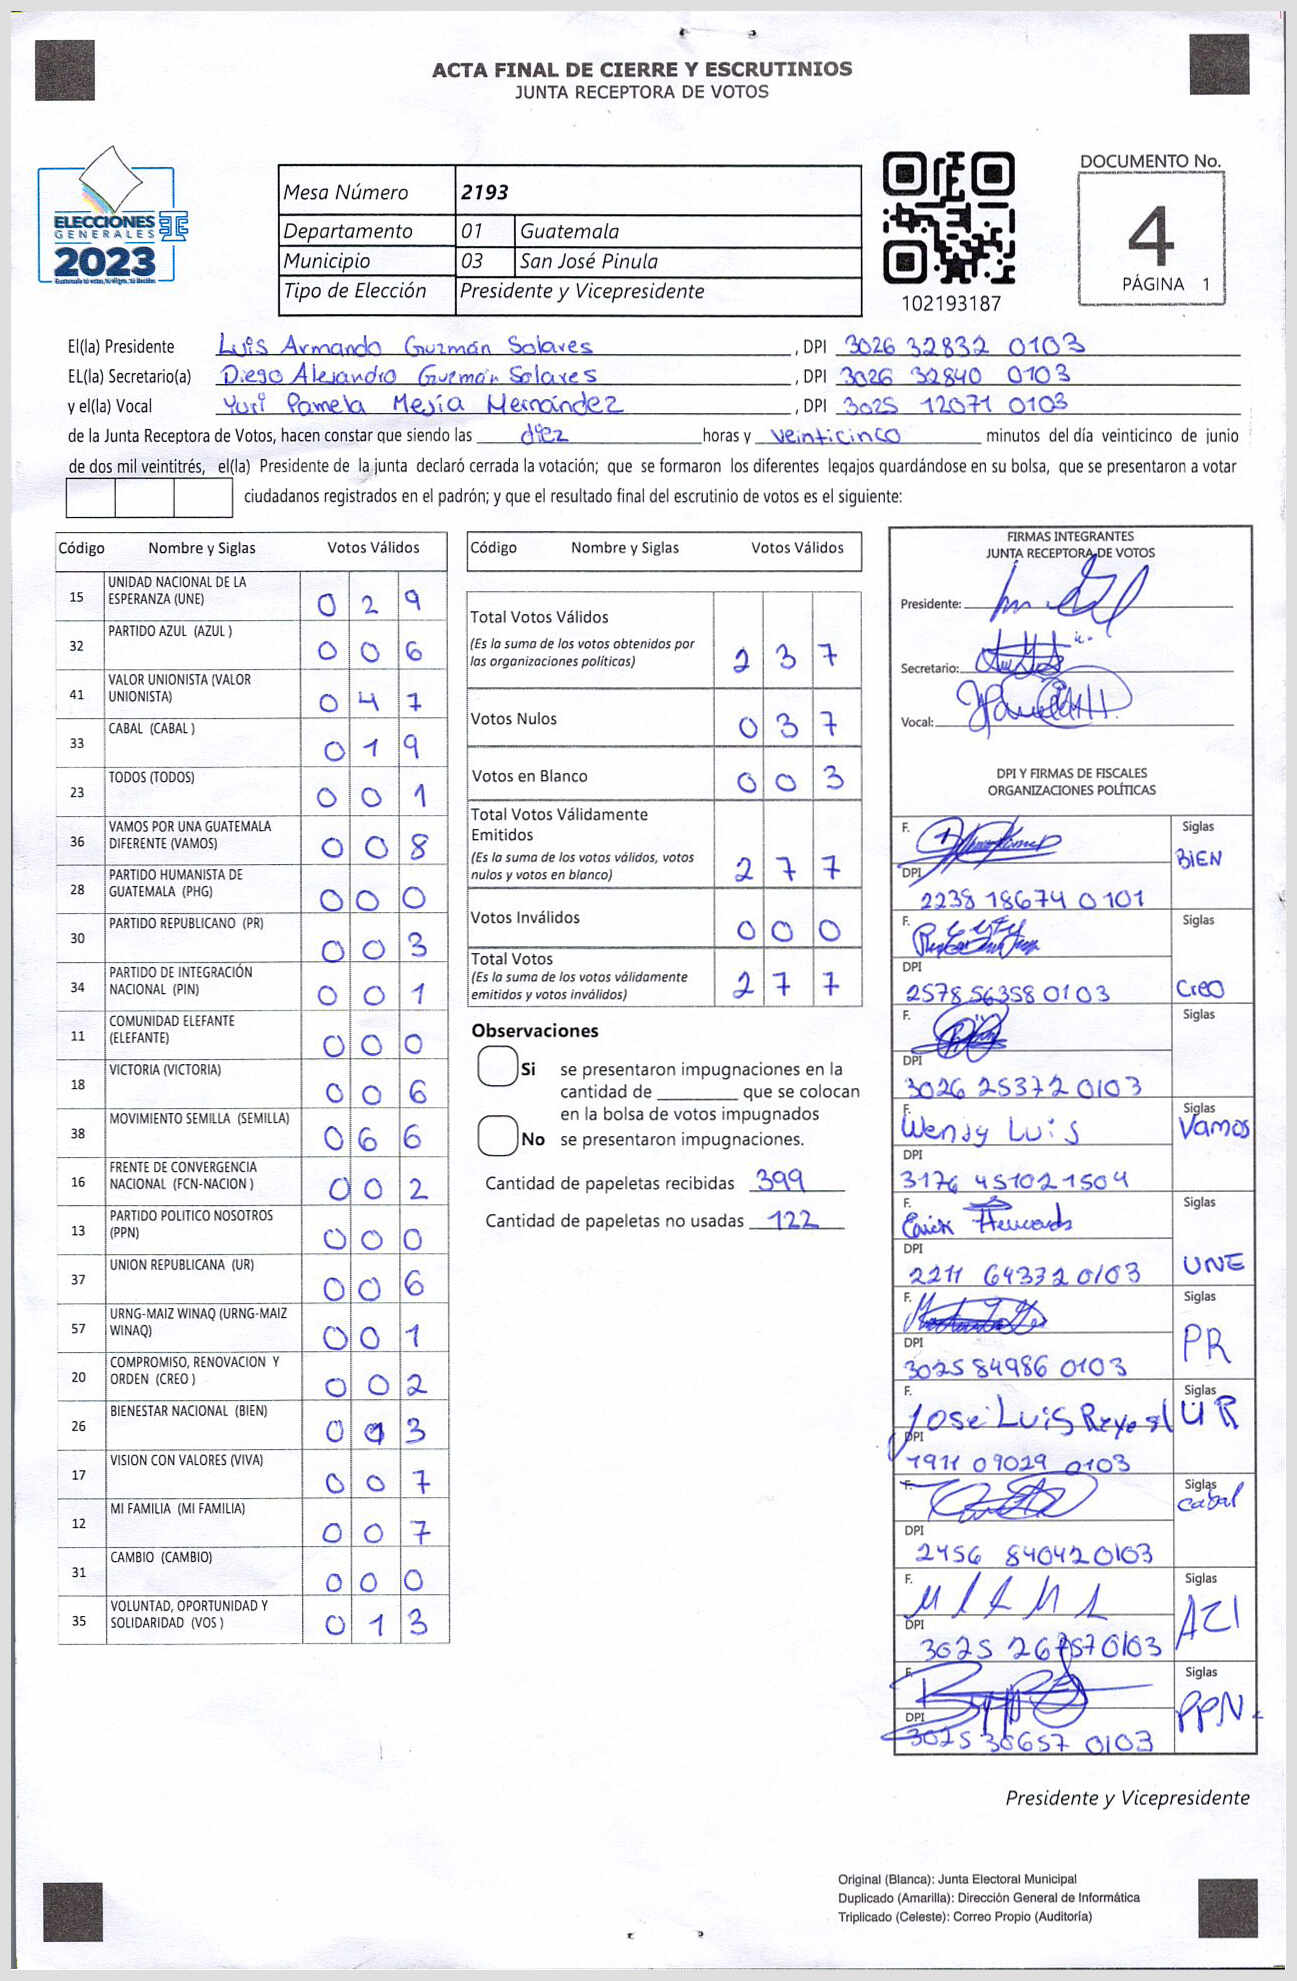 ACTA FINAL DE CIERRE Y ESCRUTINIOS
JUNTA RECEPTORA DE VOTOS
ELECCIONES
GENERALES
2023
Mesa Número 2193
Departamento 01 Guatemala
Municipio 03 San José Pinula
Tipo de Elección Presidente y Vicepresidente
102193187
DOCUMENTO No.
4
PÁGINA 1
El(la) Presidente Luis Armando Guzmán Solares , DPI 3026 32832 0103
EL(la) Secretario(a) Diego Alejandro Guzmán Solares , DPI 3026 32840 0103
y el(la) Vocal Yuri Pamela Mejía Hernández , DPI 3025 12071 0103
de la Junta Receptora de Votos, hacen constar que siendo las diez horas y veinticinco minutos del día veinticinco de junio
de dos mil veintitrés, el(la) Presidente de la junta declaró cerrada la votación; que se formaron los diferentes legajos guardándose en su bolsa, que se presentaron a votar
ciudadanos registrados en el padrón; y que el resultado final del escrutinio de votos es el siguiente:
Código Nombre y Siglas Votos Válidos
15 UNIDAD NACIONAL DE LA ESPERANZA (UNE) 0 2 9
32 PARTIDO AZUL (AZUL ) 0 0 6
41 VALOR UNIONISTA (VALOR UNIONISTA) 0 4 7
33 CABAL (CABAL ) 0 1 9
23 TODOS (TODOS) 0 0 1
36 VAMOS POR UNA GUATEMALA DIFERENTE (VAMOS) 0 0 8
28 PARTIDO HUMANISTA DE GUATEMALA (PHG) 0 0 0
30 PARTIDO REPUBLICANO (PR) 0 0 3
34 PARTIDO DE INTEGRACIÓN NACIONAL (PIN) 0 0 1
11 COMUNIDAD ELEFANTE (ELEFANTE) 0 0 0
18 VICTORIA (VICTORIA) 0 0 6
38 MOVIMIENTO SEMILLA (SEMILLA) 0 6 6
16 FRENTE DE CONVERGENCIA NACIONAL (FCN-NACION ) 0 0 2
13 PARTIDO POLITICO NOSOTROS (PPN) 0 0 0
37 UNION REPUBLICANA (UR) 0 0 6
57 URNG-MAIZ WINAQ (URNG-MAIZ WINAQ) 0 0 1
20 COMPROMISO, RENOVACION Y ORDEN (CREO ) 0 0 2
26 BIENESTAR NACIONAL (BIEN) 0 1 3
17 VISION CON VALORES (VIVA) 0 0 7
12 MI FAMILIA (MI FAMILIA) 0 0 7
31 CAMBIO (CAMBIO) 0 0 0
35 VOLUNTAD, OPORTUNIDAD Y SOLIDARIDAD (VOS ) 0 1 3
Código Nombre y Siglas Votos Válidos
Total Votos Válidos
(Es la suma de los votos obtenidos por
las organizaciones políticas) 2 3 7
Votos Nulos 0 3 7
Votos en Blanco 0 0 3
Total Votos Válidamente
Emitidos
(Es la suma de los votos válidos, votos
nulos y votos en blanco) 2 7 7
Votos Inválidos 0 0 0
Total Votos
(Es la suma de los votos válidamente
emitidos y votos inválidos) 2 7 7
Observaciones
Si se presentaron impugnaciones en la
cantidad de ________ que se colocan
en la bolsa de votos impugnados
No se presentaron impugnaciones.
Cantidad de papeletas recibidas 399
Cantidad de papeletas no usadas 122
FIRMAS INTEGRANTES
JUNTA RECEPTORA DE VOTOS
Presidente:
Secretario:
Vocal:
DPI Y FIRMAS DE FISCALES
ORGANIZACIONES POLÍTICAS
F. Siglas
BIEN
DPI
2238 18674 0101
F. Siglas
DPI
2578 56358 0103 Creo
F. Siglas
DPI
3026 25372 0103
F. Wendy Luis Siglas Vamos
DPI
3176 45102 1504
F. Erick Siglas
DPI
2211 64372 0103 UNE
F. Siglas
PR
DPI
3025 84986 0103
F. Siglas
José Luis Reyes UR
DPI
1911 09029 0103
F. Siglas
Cabal
DPI
2456 84042 0103
F. Siglas
DPI
F. Siglas
PPN
DPI
3025 30657 0103
Presidente y Vicepresidente
Original (Blanca): Junta Electoral Municipal
Duplicado (Amarilla): Dirección General de Informática
Triplicado (Celeste): Correo Propio (Auditoría)